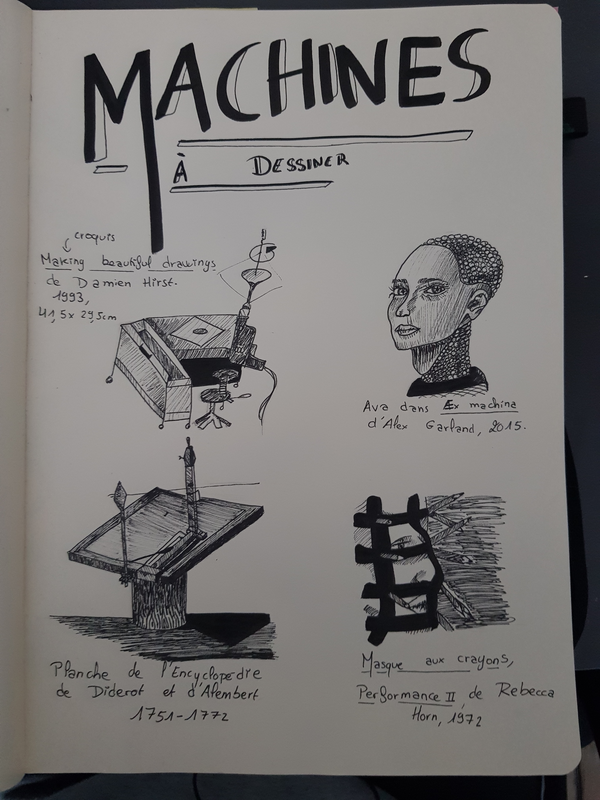 MACHINES
À DESSINER
croquis
Making beautiful drawings
de Damien Hirst.
1993,
41,5 x 29,5cm
Ava dans Æx machina
d'Alex Garland, 2015.
Planche de l'Encyclopedie
de Diderot et d'Alembert
1751-1772
Masque aux crayons,
Performance II, de Rebecca
Horn, 1972